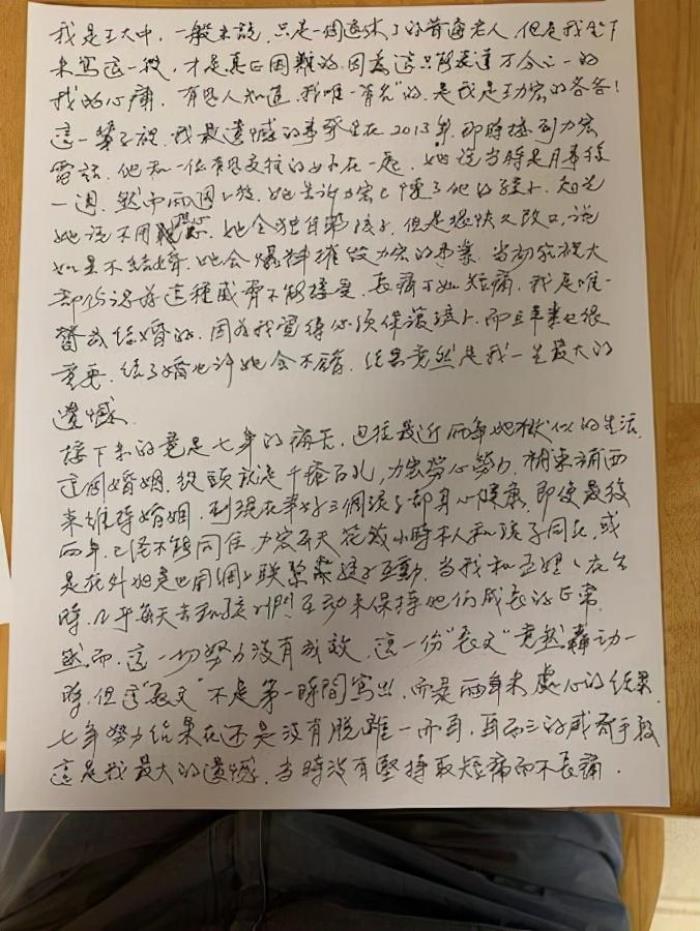 我是王大中,一般來說,只是一個退休了的普通老人,但是我坐下
來寫這一段,才是真正困難的.因為這只能表達萬分之一的
我的心痛.有些人知道,我唯一"有名"的,是我是力宏的爸爸!
這一輩子說,我最遺憾的事發生在2013年,那時接到力宏
電話,他和一位有過交往的女人在一起.她說當時是月事後
一週,然而兩週後,她告訴力宏已懷了他的孩子.起先
她說不用擔心,她會獨自帶孩子,但是很快又改口,說
如果不結婚,她會爆料摧毀力宏的事業.當初家裡大
都份認為這種威脅不能接受,長痛不如短痛.我是唯一
贊成結婚的,因為我覺得必須保護孩子,而且事業也很
重要,結了婚也許她會不錯,結果竟然是我一生最大的
遺憾.
接下來的竟是七年的痛苦,包括最近兩年地獄似的生活.
這個婚姻,從頭就是千瘡百孔,力宏勞心勞力,補東補西
來維持婚姻,到現在幸好三個孩子都身心健康,即使最後
兩年,已經不能同住,力宏每天花幾小時本人和孩子同在,或
是在外地也用網上聯繫孩子互動,當我和亞嫻,在台
時,几乎每天去和孩子們互動來保持他們成長的正常.
然而,這一切努力沒有成效,這一份"長文"竟然轟動一
時,但這"長文"不是第一時間寫出,而是兩年來處心的結果.
七年努力結果在还是沒有脫離一而再,再而三的威脅手段
這是我最大的遺憾,當時沒有堅持取短痛而不長痛.